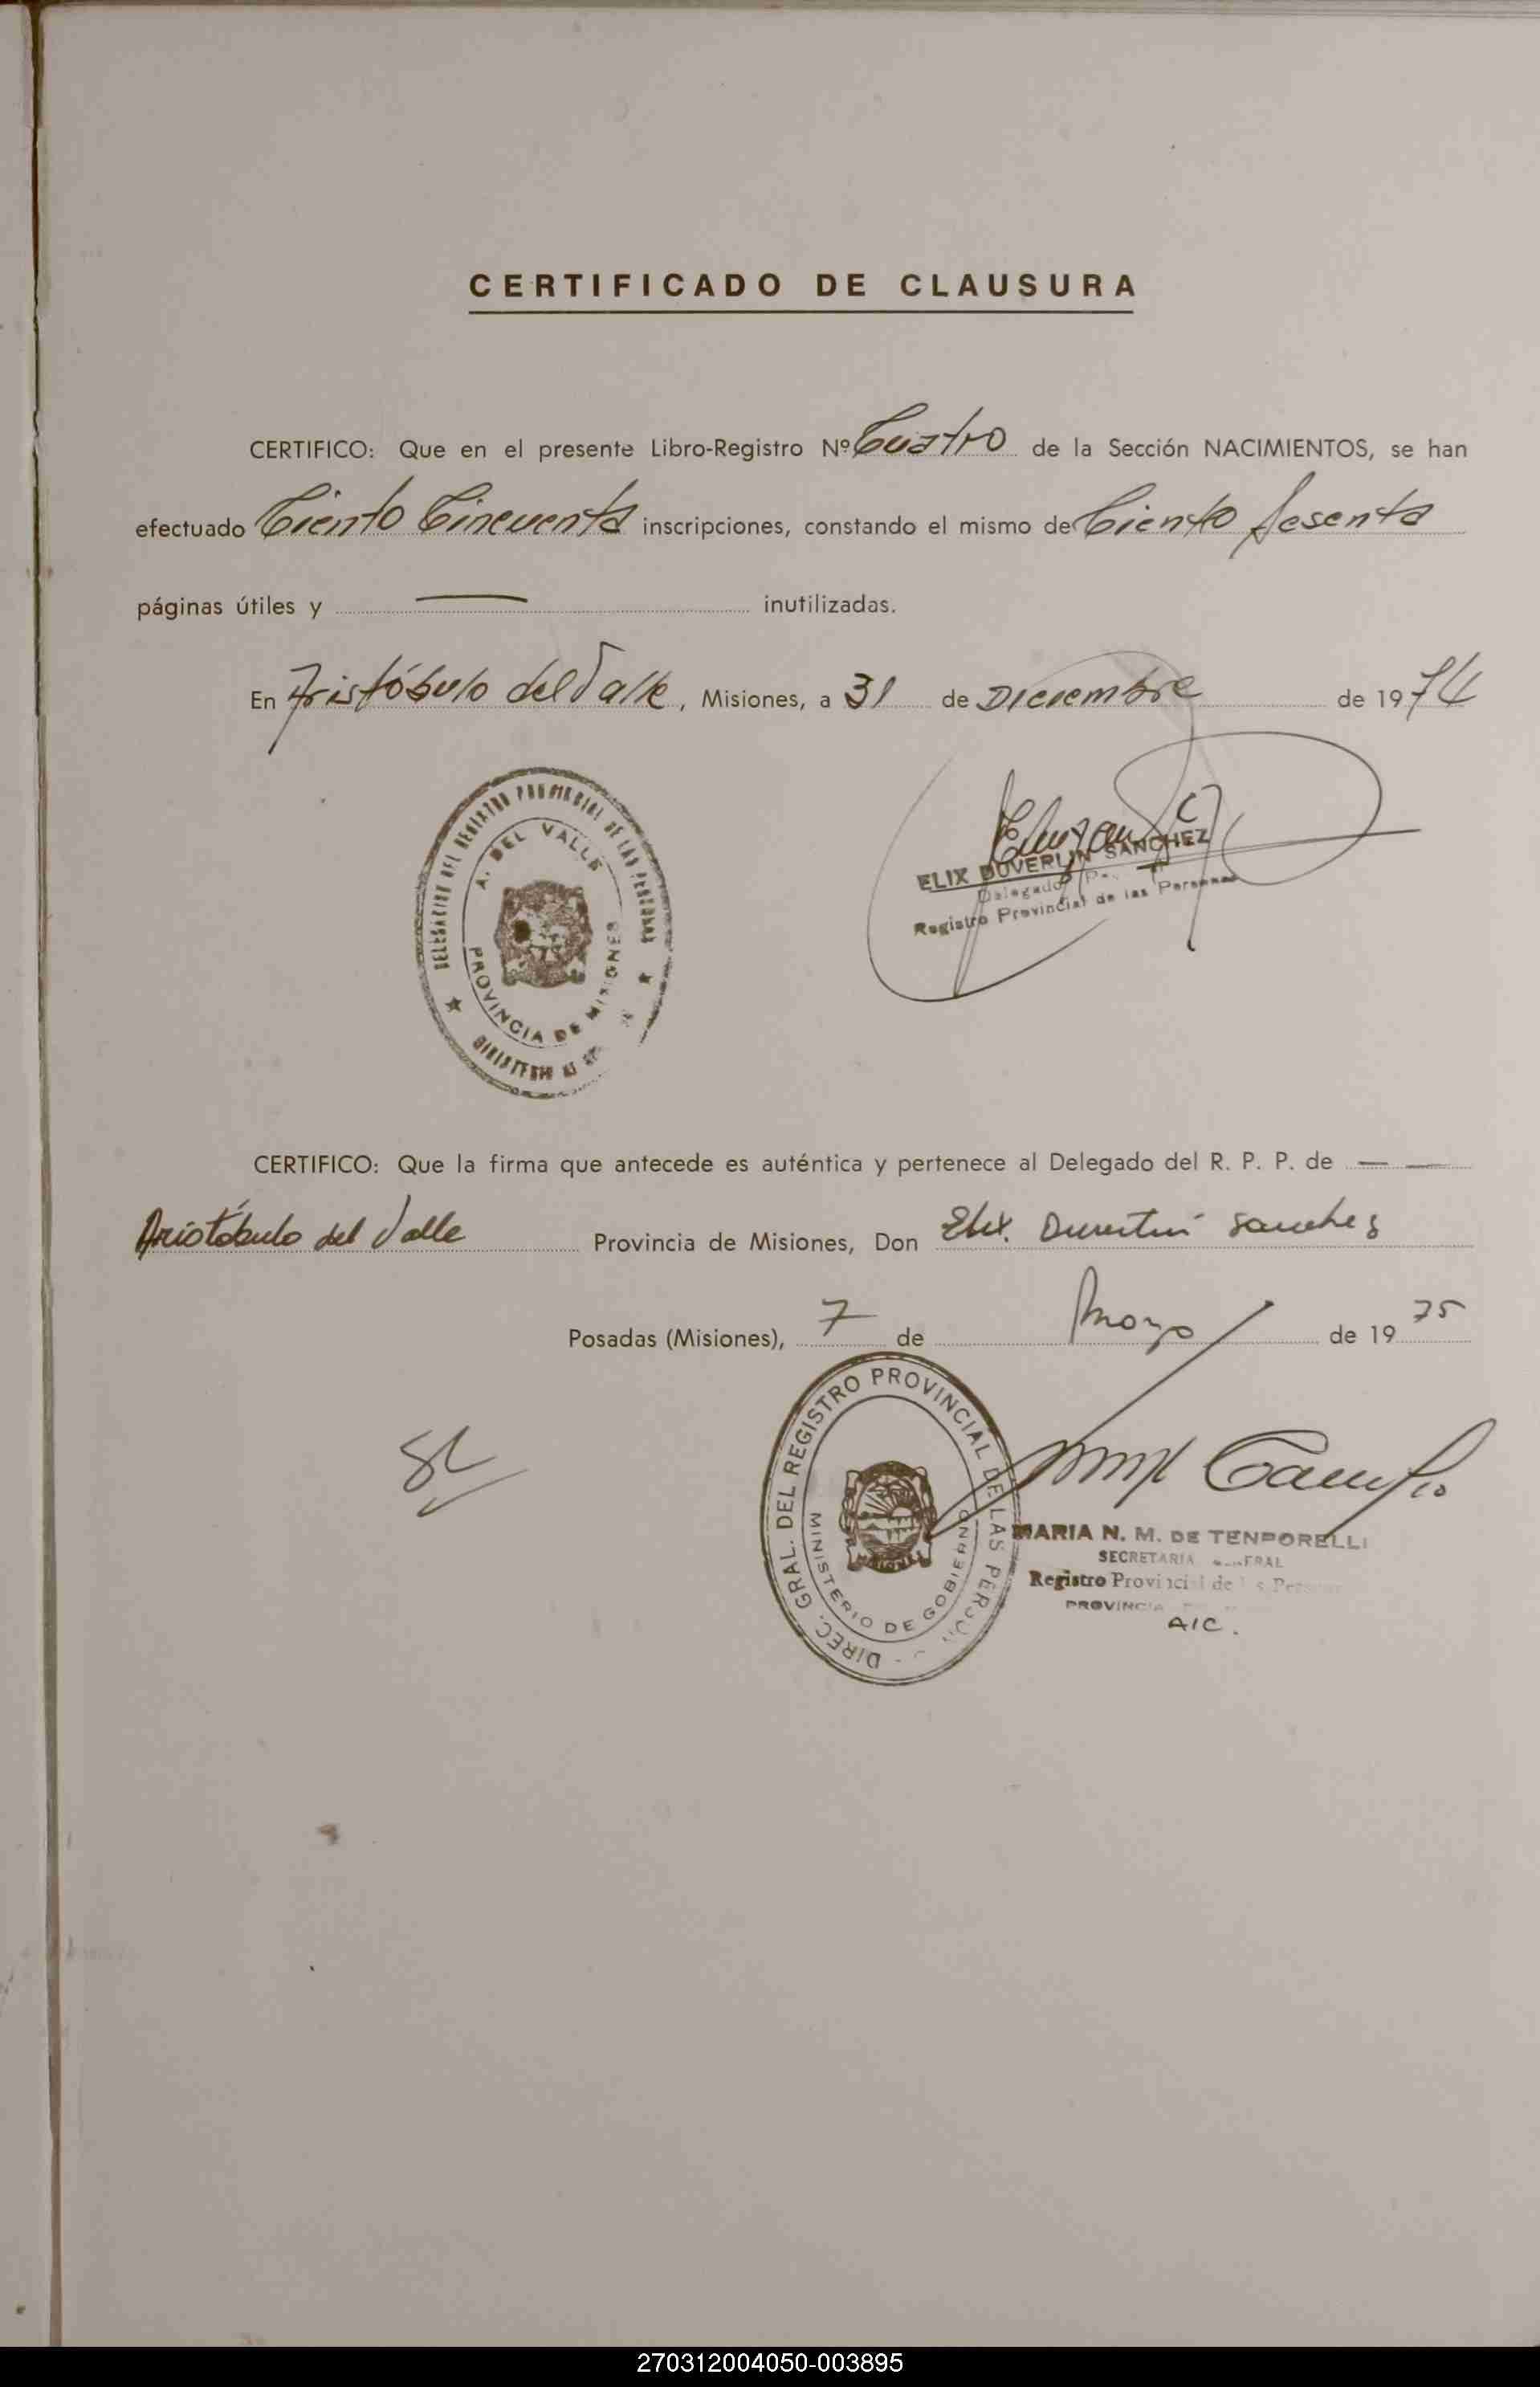 CERTIFICADO DE CLAUSURA
CERTIFICO: Que en el presente Libro-Registro Nº Cuatro de la Sección NACIMIENTOS, se han
efectuado Ciento Cincuenta inscripciones, constando el mismo de Ciento Sesenta
páginas útiles y — inutilizadas.
En Aristóbulo del Valle, Misiones, a 31 de Diciembre de 1974
DELEGACION DEL REGISTRO PROVINCIAL DE LAS PERSONAS
A. DEL VALLE
PROVINCIA DE MISIONES
MINISTERIO
ELIX DUVERLIN SANCHEZ
Delegado
Registro Provincial de las Personas
CERTIFICO: Que la firma que antecede es auténtica y pertenece al Delegado del R. P. P. de — —
Aristóbulo del Valle Provincia de Misiones, Don Elix. Duverlin Sanchez
Posadas (Misiones), 7 de Mayo de 1975
DIREC. GRAL. DEL REGISTRO PROVINCIAL DE LAS PERSON
MINISTERIO DE GOBIERNO
MISIONES
MARIA N. M. DE TENPORELLI
SECRETARIA GENERAL
Registro Provincial de las Personas
PROVINCIA
A/C.
270312004050-003895